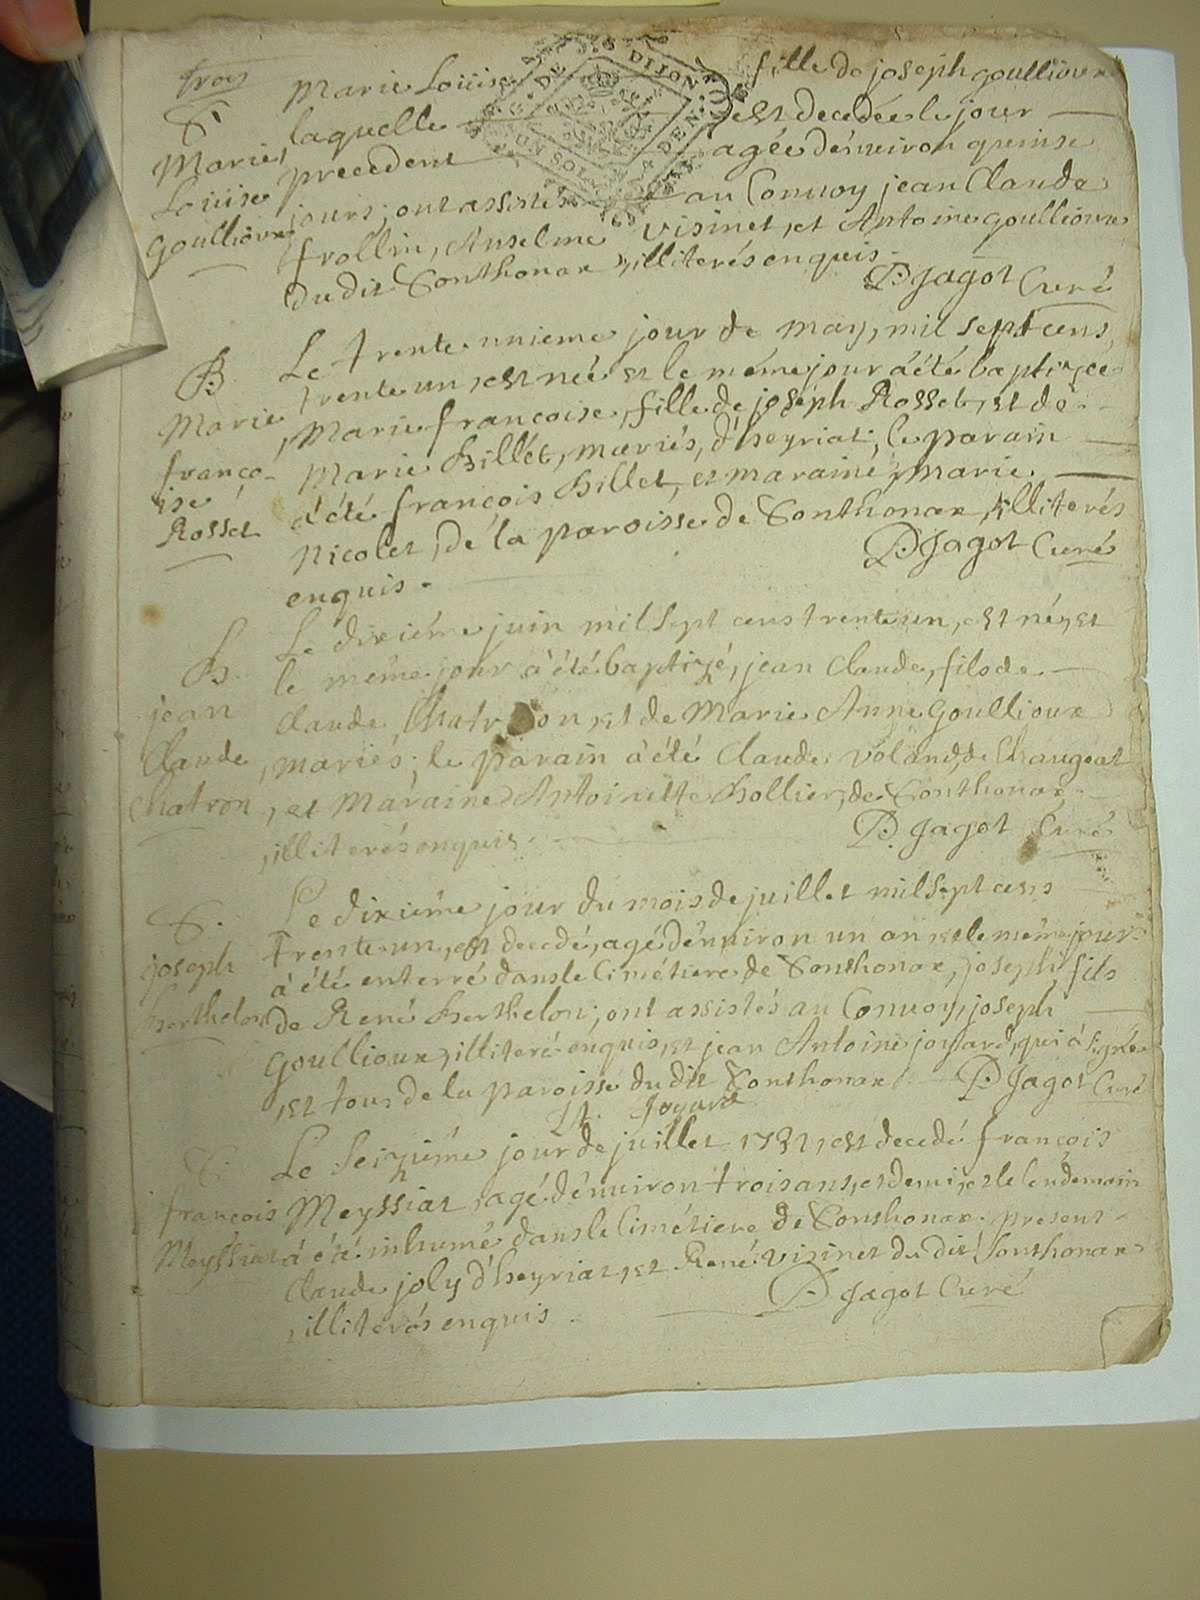 trois
S.
Marie
Louise
Goullioux
Marie Louise fille de joseph goullioux
laquelle est decedée le jour
precedent agée d'énuiron quinse
jours; ont assistés au Conuoy jean Claude
frollin, Anselme visinet, et Antoine goullioux
du dit Sonthonax, illiterés enquis.
P. Jagot Curé
DIJON
UN SOL
B.
Marie
franço-
ise
Rosset
Le trente unieme jour de may, mil sept cens
trente un, est neé et le méme jour à été baptizée
, Marie francoise, fille de joseph Rosset, et de
Marie Billet, mariés, d'heyriat; le parain
à été françois Billet, et maraine, Marie
Nicolet, de la paroisse de Sonthonax, illiterés
enquis.
P. Jagot Curé
B.
jean
Claude
Chatron
Le dixiéme juin mil sept cens trente un, est né, et
le méme jour à été baptizé, jean Claude, fils de
Claude Chatron, et de Marie Anne Goullioux
, mariés; le parain à été Claude Voland, de Chaugeat
, et Maraine Antoinette Bollier, de Sonthonax
, illiterés enquis.
P. Jagot Curé
S.
joseph
Berthelon
Le dixiéme jour du mois de juillet mil sept cens
trente un, est decedé, agé d'énuiron un an, et le méme jour
à été enterré dans le cimétiere de Sonthonax, joseph, fils
de René Berthelon; ont assistés au Conuoy, joseph
Goullioux, illiteré enquis, et jean Antoine joyard, qui à signé
, et tous de la paroisse du dit Sonthonax. P. Jagot Curé
Joyard
S.
françois
Meyssiat
Le seiziéme jour de juillet 1731, est decedé françois
Meyssiat, agé d'énuiron trois ans, et demi, et le lendemain
à été inhumé dans le cimétiere de Sonthonax. present
Claude joly d'heyriat, et René visinet du dit Sonthonax
, illiterés enquis.
P. Jagot Curé